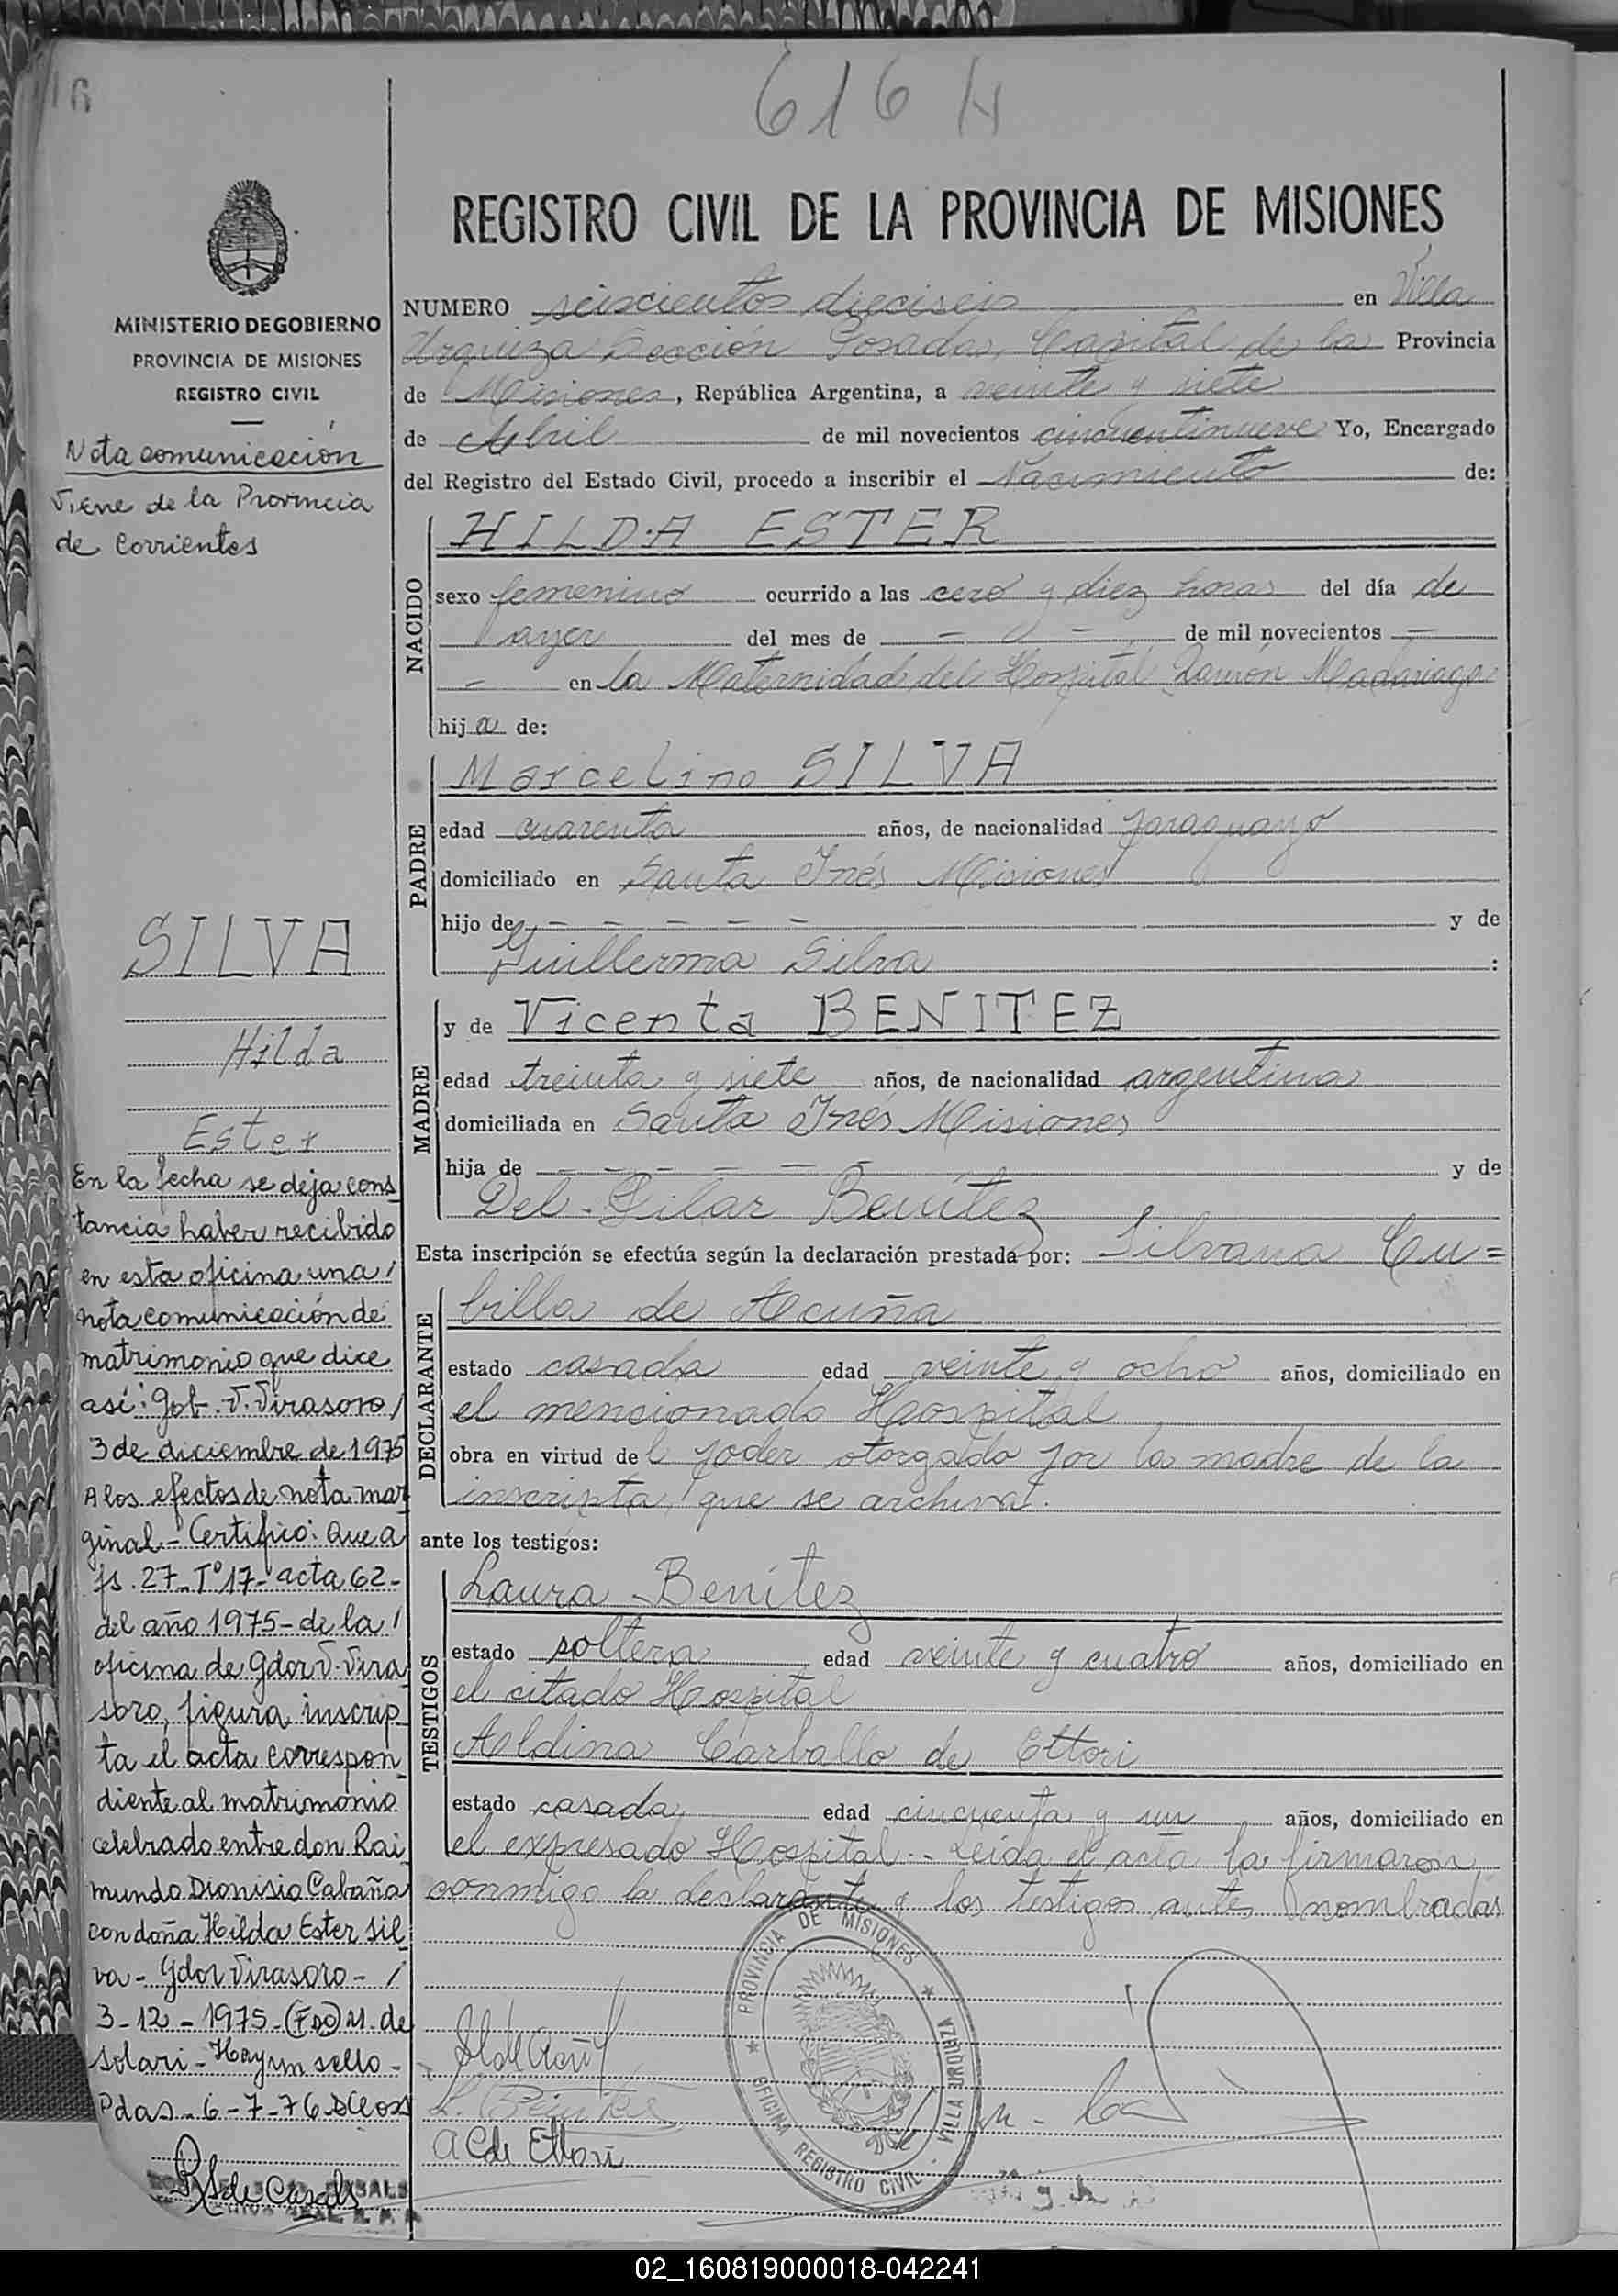 16
616 N
MINISTERIO DE GOBIERNO
PROVINCIA DE MISIONES
REGISTRO CIVIL
Nota comunicación
Viene de la Provincia
de Corrientes
SILVA
Hilda
Ester
En la fecha se deja cons
tancia haber recibido
en esta oficina una /
nota comunicación de
matrimonio que dice
así: Gob. V. Virasoro /
3 de diciembre de 1975
A los efectos de nota mar
ginal - Certifico: Que a
fs. 27 - Tº 17 - acta 62 -
del año 1975 - de la /
oficina de Gdor V. Vira
soro, figura inscrip
ta el acta correspon
diente al matrimonio
celebrado entre don Rai
mundo Dionisio Cabaña
con doña Hilda Ester Sil
va - Gdor Virasoro - /
3 - 12 - 1975 - (Fdo) M. de
Solari - Hay un sello -
Pdas - 6 - 7 - 76
REGISTRO CIVIL DE LA PROVINCIA DE MISIONES
NUMERO seiscientos dieciseis en Villa
Urquiza Sección Posadas, Capital de la Provincia
de Misiones, República Argentina, a veinte y siete
de Abril de mil novecientos cincuentinueve Yo, Encargado
del Registro del Estado Civil, procedo a inscribir el Nacimiento de:
NACIDO
HILDA ESTER
sexo femenino ocurrido a las cero y diez horas del día de
ayer del mes de - - de mil novecientos -
- en la Maternidad del Hospital Ramón Madariaga
hija de:
PADRE
Marcelino SILVA
edad cuarenta años, de nacionalidad paraguayo
domiciliado en Santa Inés Misiones
hijo de - - - - - y de
Guillerma Silva :
MADRE
y de Vicenta BENITEZ
edad treinta y siete años, de nacionalidad argentina
domiciliada en Santa Inés Misiones
hija de - - - - - - y de
Del Pilar Benítez
Esta inscripción se efectúa según la declaración prestada por: Silvana Cu=
DECLARANTE
billa de Acuña
estado casada edad veinte y ocho años, domiciliado en
el mencionado Hospital
obra en virtud del poder otorgado por la madre de la
inscripta, que se archiva.
ante los testigos:
TESTIGOS
Laura Benítez
estado soltera edad veinte y cuatro años, domiciliado en
el citado Hospital
Aldina Carballo de Ettori
estado casada edad cincuenta y un años, domiciliado en
el expresado Hospital.- Leida el acta la firmaron
conmigo la declarante y los testigos antes nombradas
PROVINCIA DE MISIONES
OFICINA REGISTRO CIVIL
VILLA URQUIZA
L. Benítez
A C de Ettori
02_160819000018-042241